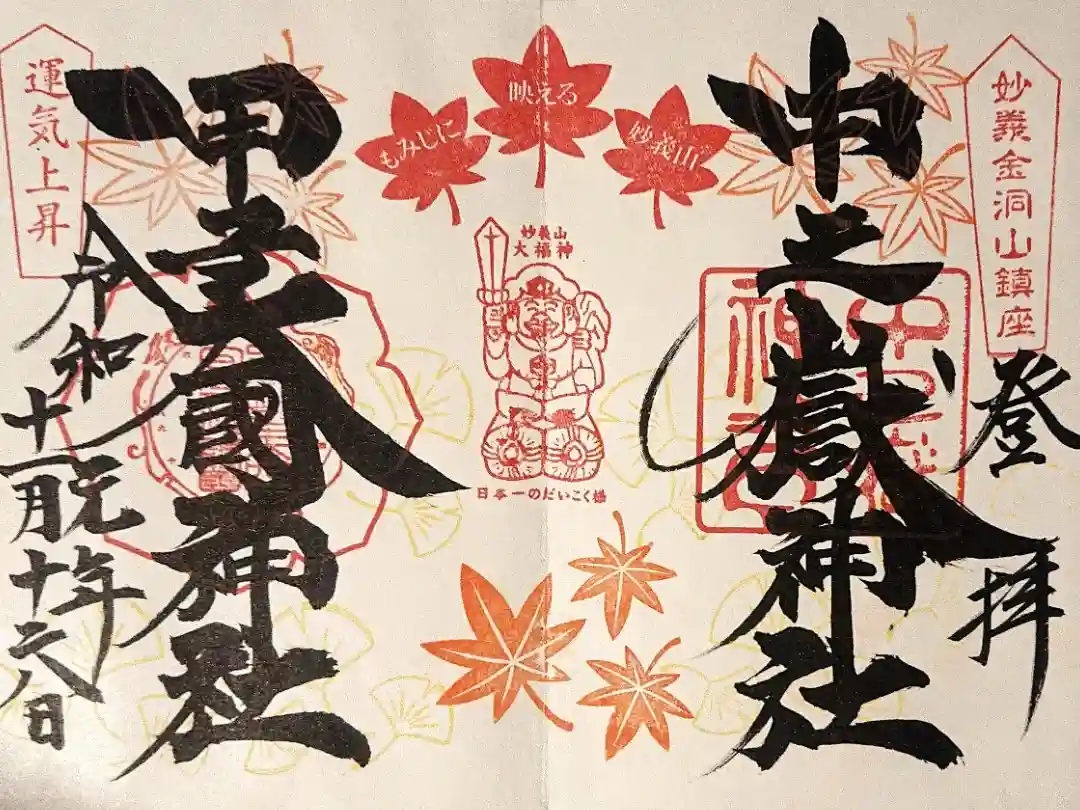 妙義金洞山鎮座
登拝
中之嶽神社
もみじに
映える
妙義山
妙義山
大福神
日本一のだいこく様
甲子大國神社
運気上昇
令和元年
十一月十六日